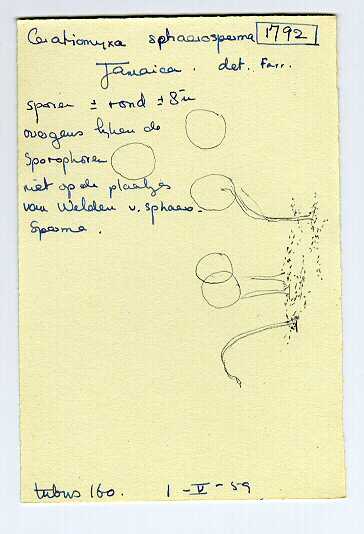 Ceratiomyxa sphaerosperma 1792
Jamaica. det. Farr.
sporen ± rond ± 8 µ
overgens lijken de
Sporophoren
niet op de plaatjes
van Welden v. sphaero-
sperma.
tubus 160. 1 - V - 59